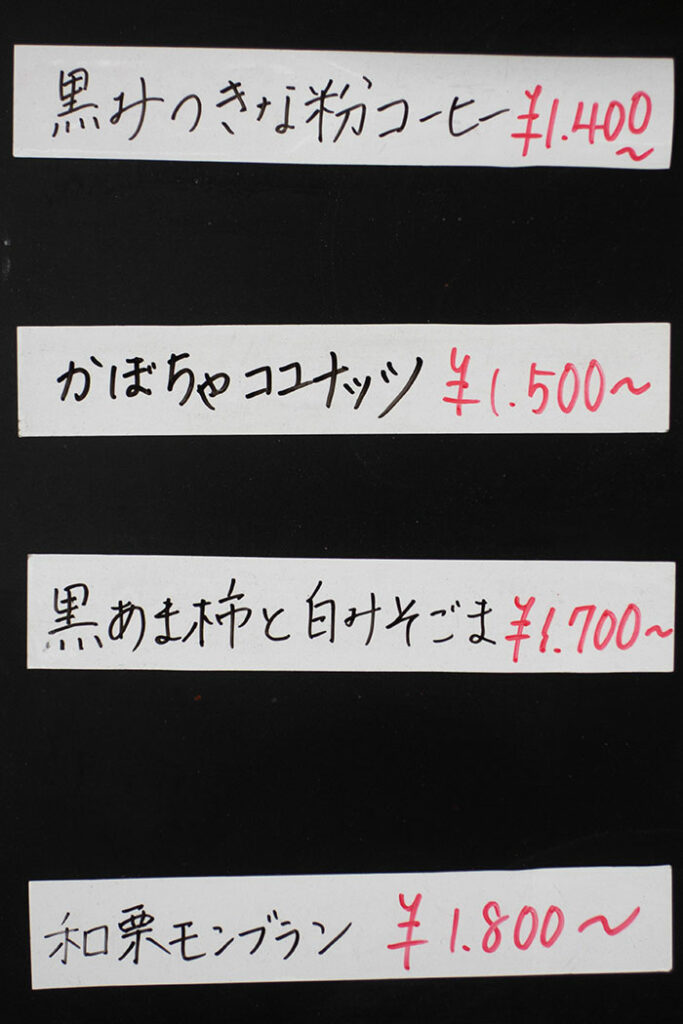 黒みつきな粉コーヒー ¥1.400~
かぼちゃココナッツ ¥1.500~
黒あま柿と白みそごま ¥1.700~
和栗モンブラン ¥1.800~